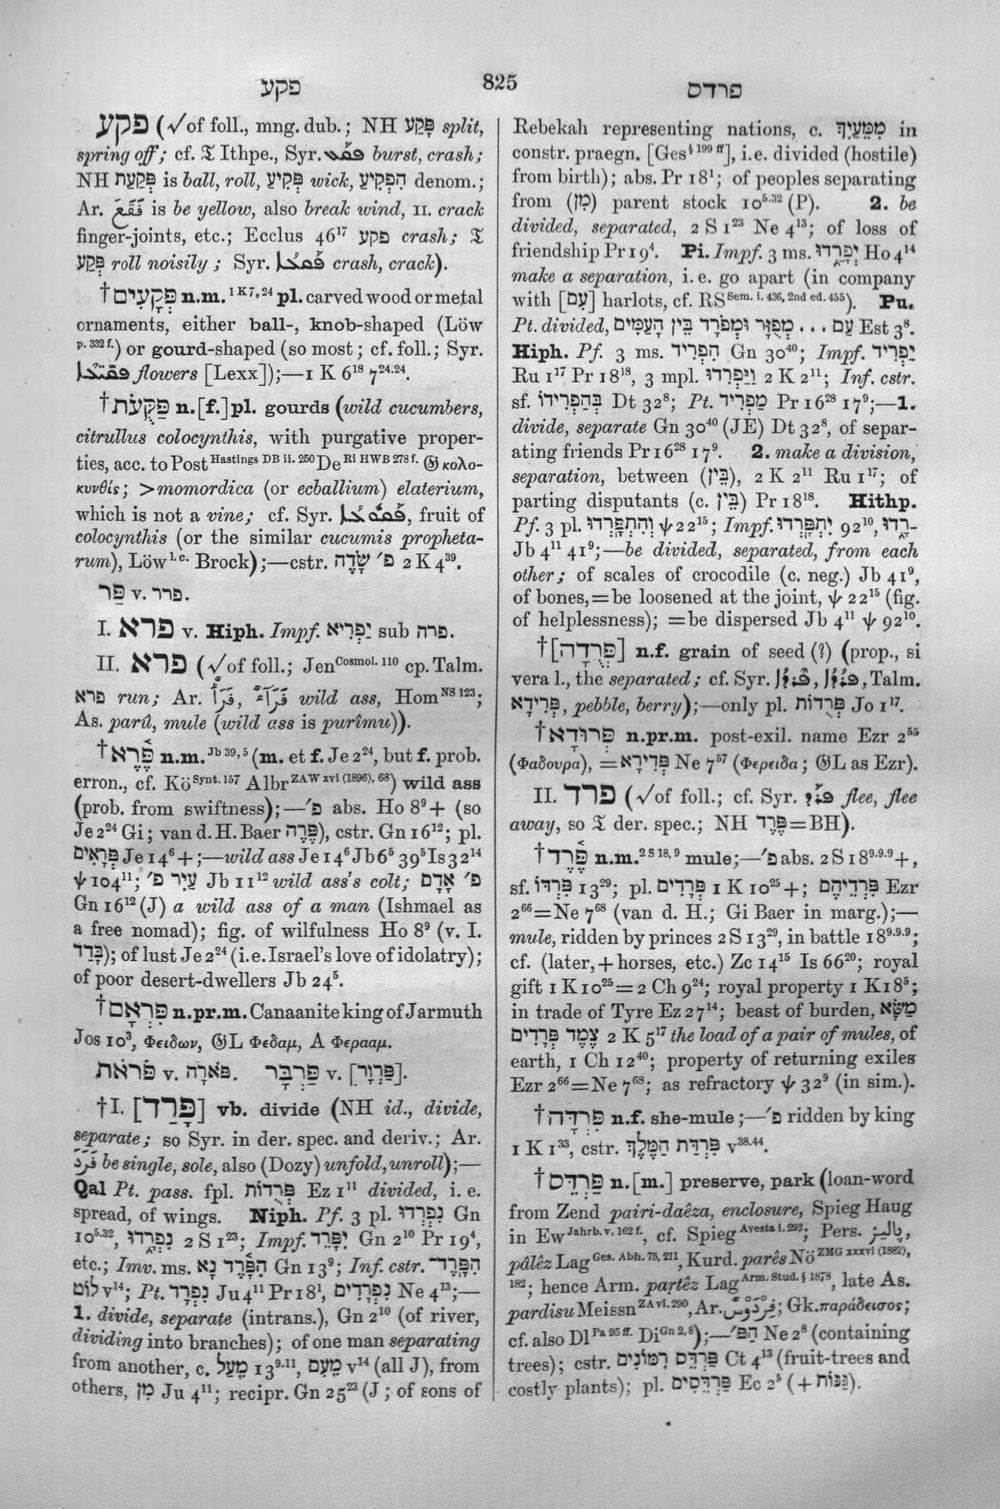 פקע
825
פרדס
פקע (√of foll., mng. dub.; NH פָּקַע split,
spring off; cf. 𝔗 Ithpe., Syr. burst, crash;
NH פְּקַעַת is ball, roll, פְּקִיעַ wick, הִפְקִיעַ denom.;
Ar. فَقَعَ is be yellow, also break wind, II. crack
finger-joints, etc.; Ecclus 46¹⁷ פקע crash; 𝔗
פְּקַע roll noisily; Syr. crash, crack).
†פְּקָעִים n.m. ¹ ᴷ ⁷,²⁴ pl. carved wood or metal
ornaments, either ball-, knob-shaped (Löw
p. 332 f.) or gourd-shaped (so most; cf. foll.; Syr.
flowers [Lexx]);—1 K 6¹⁸ 7²⁴·²⁴.
†פַּקֻּעֹת n.[f.]pl. gourds (wild cucumbers,
citrullus colocynthis, with purgative proper-
ties, acc. to Post Hastings DB ii. 250 De Ri HWB 278 f. 𝔊 κολο-
κυνθίς; >momordica (or ecballium) elaterium,
which is not a vine; cf. Syr. fruit of
colocynthis (or the similar cucumis propheta-
rum), Löw l.c. Brock);—cstr. פ׳ שָׂדֶה 2 K 4³⁹.
פַּר v. פרר.
I. פרא v. Hiph. Impf. יַפְרִיא sub פרה.
II. פרא (√of foll.; Jen Cosmol. 110 cp. Talm.
פרא run; Ar. فَرَأٌ, فَرَآءٌ wild ass, Hom NS 123;
As. parû, mule (wild ass is purîmu)).
†פֶּרֶא n.m. Jb 39,5 (m. et f. Je 2²⁴, but f. prob.
erron., cf. Kö Synt. 157 Albr ZAW xvi (1896), 68) wild ass
(prob. from swiftness);—פ׳ abs. Ho 8⁹+ (so
Je 2²⁴ Gi; van d. H. Baer פֶּרֶה), cstr. Gn 16¹²; pl.
פְּרָאִים Je 14⁶+;—wild ass Je 14⁶ Jb 6⁵ 39⁵ Is 32¹⁴
ψ 104¹¹; עַיִר פ׳ Jb 11¹² wild ass's colt; פ׳ אָדָם
Gn 16¹² (J) a wild ass of a man (Ishmael as
a free nomad); fig. of wilfulness Ho 8⁹ (v. I.
בָּדַד); of lust Je 2²⁴ (i.e. Israel's love of idolatry);
of poor desert-dwellers Jb 24⁵.
†פִּרְאָם n.pr.m. Canaanite king of Jarmuth
Jos 10³, Φειδων, 𝔊L Φεδαμ, A Φερααμ.
פֹּראֹת v. פֹּארָה. פַּרְבָּר v. [פַּרְוָר].
†I. [פָּרַד] vb. divide (NH id., divide,
separate; so Syr. in der. spec. and deriv.; Ar.
فَرَدَ be single, sole, also (Dozy) unfold, unroll);—
Qal Pt. pass. fpl. פְּרֻדוֹת Ez 1¹¹ divided, i. e.
spread, of wings. Niph. Pf. 3 pl. נִפְרְדוּ Gn
10⁵·³², נִפְרָדוּ 2 S 1²³; Impf. יִפָּרֵד Gn 2¹⁰ Pr 19⁴,
etc.; Imv. ms. הִפָּרֶד נָא Gn 13⁹; Inf. cstr. הִפָּרֶד־
לוֹט v¹⁴; Pt. נִפְרָד Ju 4¹¹ Pr 18¹, נִפְרָדִים Ne 4¹³;—
1. divide, separate (intrans.), Gn 2¹⁰ (of river,
dividing into branches); of one man separating
from another, c. מֵעַל 13⁹·¹¹, מֵעִם v¹⁴ (all J), from
others, מִן Ju 4¹¹; recipr. Gn 25²³ (J; of sons of
Rebekah representing nations, c. מִמֵּעַיִךְ in
constr. praegn. [Ges § 199 ff], i.e. divided (hostile)
from birth); abs. Pr 18¹; of peoples separating
from (מִן) parent stock 10⁵·³² (P). 2. be
divided, separated, 2 S 1²³ Ne 4¹³; of loss of
friendship Pr 19⁴. Pi. Impf. 3 ms. יְפָרֵדוּ Ho 4¹⁴
make a separation, i. e. go apart (in company
with [עִם] harlots, cf. RS Sem. i. 436, 2nd ed. 455). Pu.
Pt. divided, עַם . . . מְפֻזָּר וּמְפֹרָד בֵּין הָעַמִּים Est 3⁸.
Hiph. Pf. 3 ms. הִפְרִיד Gn 30⁴⁰; Impf. יַפְרִיד
Ru 1¹⁷ Pr 18¹⁸, 3 mpl. וַיַּפְרִדוּ 2 K 2¹¹; Inf. cstr.
sf. בְּהַפְרִידוֹ Dt 32⁸; Pt. מַפְרִיד Pr 16²⁸ 17⁹;—1.
divide, separate Gn 30⁴⁰ (JE) Dt 32⁸, of separ-
ating friends Pr 16²⁸ 17⁹. 2. make a division,
separation, between (בֵּין), 2 K 2¹¹ Ru 1¹⁷; of
parting disputants (c. בֵּין) Pr 18¹⁸. Hithp.
Pf. 3 pl. וְהִתְפָּרְדוּ ψ 22¹⁵; Impf. יִתְפָּרְדוּ 92¹⁰, ־רָדוּ
Jb 4¹¹ 41⁹;—be divided, separated, from each
other; of scales of crocodile (c. neg.) Jb 41⁹,
of bones,=be loosened at the joint, ψ 22¹⁵ (fig.
of helplessness); =be dispersed Jb 4¹¹ ψ 92¹⁰.
†[פְּרֻדָה] n.f. grain of seed (?) (prop., si
vera l., the separated; cf. Syr. Talm.
פְּרִידָא, pebble, berry);—only pl. פְּרֻדוֹת Jo 1¹⁷.
†פְּרוּדָא n.pr.m. post-exil. name Ezr 2⁵⁵
(Φαδουρα), =פְּרִידָא Ne 7⁵⁷ (Φερειδα; 𝔊L as Ezr).
II. פרד (√of foll.; cf. Syr. flee, flee
away, so 𝔗 der. spec.; NH פֶּרֶד=BH).
†פֶּרֶד n.m. 2 S 18, 9 mule;—פ׳ abs. 2 S 18⁹·⁹·⁹+,
sf. פִּרְדּוֹ 13²⁹; pl. פְּרָדִים 1 K 10²⁵+; פִּרְדֵיהֶם Ezr
2⁶⁶=Ne 7⁶⁸ (van d. H.; Gi Baer in marg.);—
mule, ridden by princes 2 S 13²⁹, in battle 18⁹·⁹·⁹;
cf. (later, + horses, etc.) Zc 14¹⁵ Is 66²⁰; royal
gift 1 K 10²⁵=2 Ch 9²⁴; royal property 1 K 18⁵;
in trade of Tyre Ez 27¹⁴; beast of burden, מַשָּׂא
צֶמֶד פְּרָדִים 2 K 5¹⁷ the load of a pair of mules, of
earth, 1 Ch 12⁴⁰; property of returning exiles
Ezr 2⁶⁶=Ne 7⁶⁸; as refractory ψ 32⁹ (in sim.).
†פִּרְדָּה n.f. she-mule;—פ׳ ridden by king
1 K 1³³, cstr. פִּרְדַּת הַמֶּלֶךְ v³⁸·⁴⁴.
†פַּרְדֵּס n.[m.] preserve, park (loan-word
from Zend pairi-daêza, enclosure, Spieg Haug
in Ew Jahrb. v. 162 f., cf. Spieg Avesta i. 293; Pers. پاليز,
pâlêz Lag Ges. Abh. 75, 211, Kurd. parês Nö ZMG xxxvi (1882),
182; hence Arm. parṭêz Lag Arm. Stud. § 1878, late As.
pardisu Meissn ZA vi. 290, Ar. فِرْدَوْسٌ; Gk. παράδεισος;
cf. also Dl Pa 95 ff. Di Gn 2, 8);—הַפּ׳ Ne 2⁸ (containing
trees); cstr. פַּרְדֵּס רִמּוֹנִים Ct 4¹³ (fruit-trees and
costly plants); pl. פַּרְדֵּסִים Ec 2⁵ (+גַּנּוֹת).